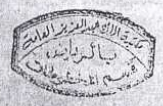 مكتبة الملك عبد العزيز العامة
بالرياض
قسم المخطوطات